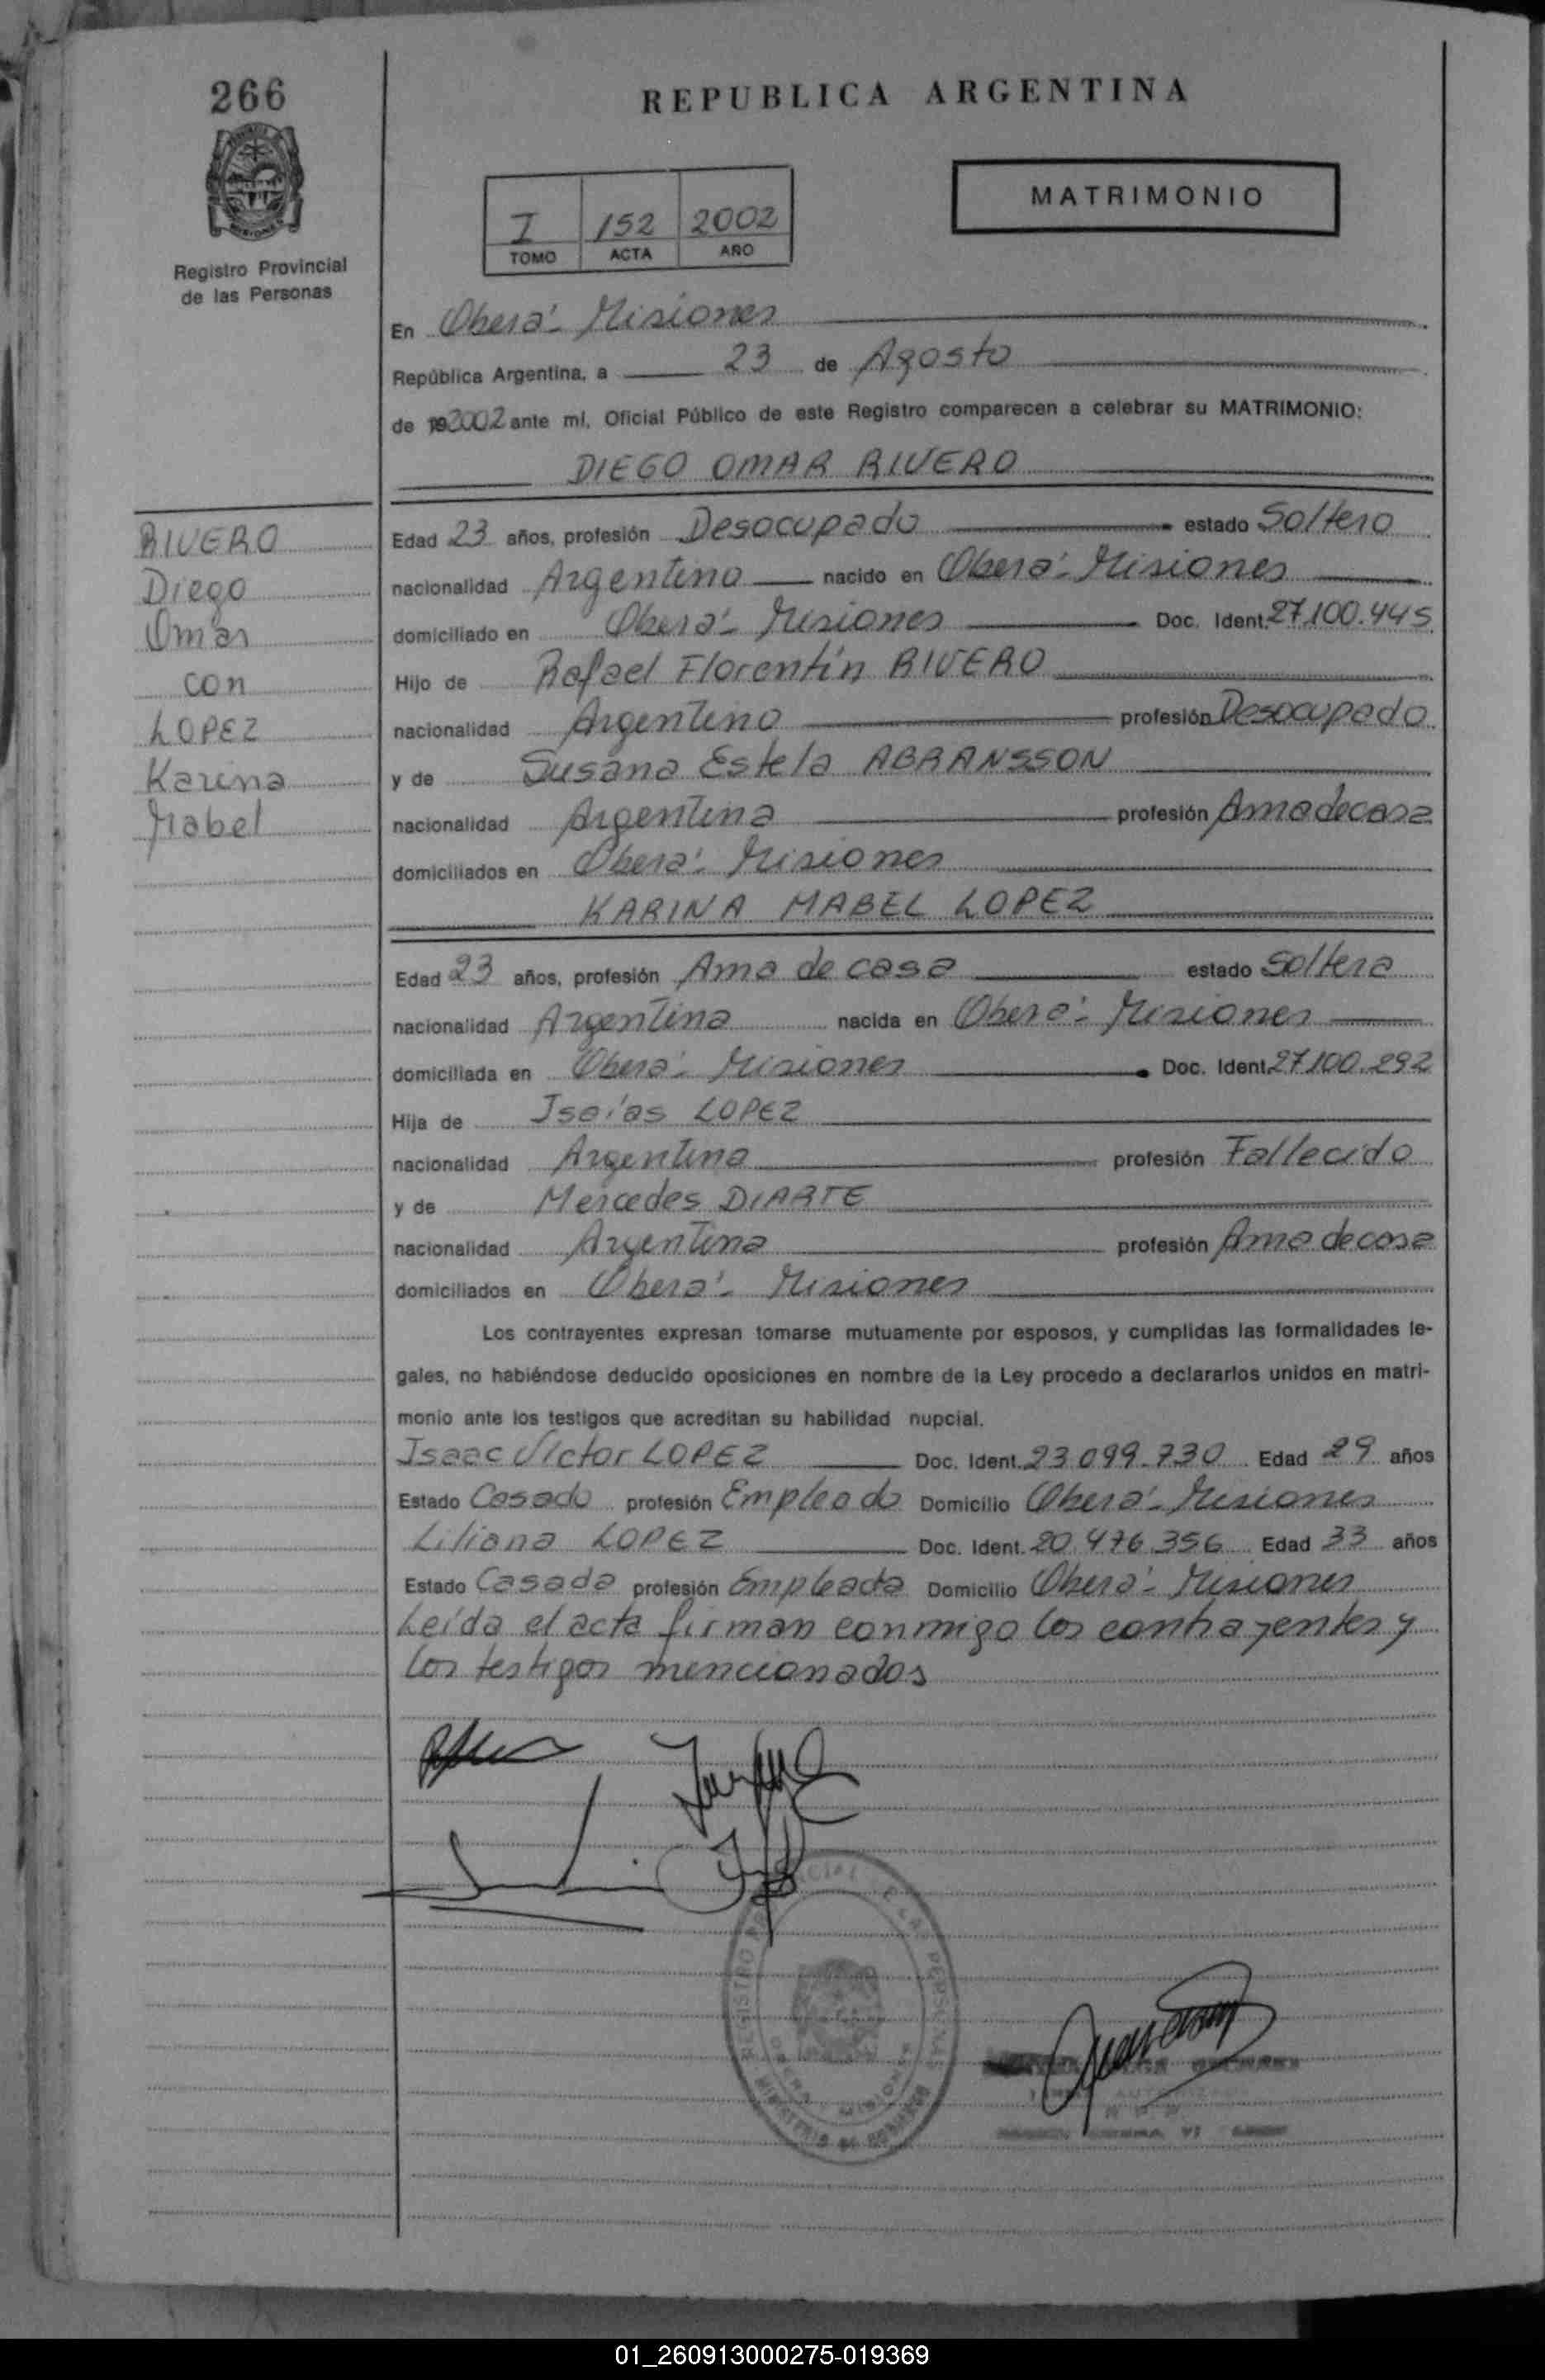 266
REPUBLICA ARGENTINA
MATRIMONIO
I 152 2002
TOMO ACTA AÑO
Registro Provincial
de las Personas
MISIONES
En Oberá - Misiones
República Argentina, a 23 de Agosto
de 192002 ante mí, Oficial Público de este Registro comparecen a celebrar su MATRIMONIO:
DIEGO OMAR RIVERO
RIVERO
Diego
Omar
con
LOPEZ
Karina
Mabel
Edad 23 años, profesión Desocupado estado Soltero
nacionalidad Argentina nacido en Oberá - Misiones
domiciliado en Oberá - Misiones Doc. Ident. 27.100.445
Hijo de Rafael Florentín RIVERO
nacionalidad Argentino profesión Desocupado
y de Susana Estela ABRANSSON
nacionalidad Argentina profesión Ama de casa
domiciliados en Oberá - Misiones
KARINA MABEL LOPEZ
Edad 23 años, profesión Ama de casa estado Soltera
nacionalidad Argentina nacida en Oberá - Misiones
domiciliada en Oberá - Misiones Doc. Ident. 27.100.292
Hija de Isaías LOPEZ
nacionalidad Argentina profesión Fallecido
y de Mercedes DIARTE
nacionalidad Argentina profesión Ama de casa
domiciliados en Oberá - Misiones
Los contrayentes expresan tomarse mutuamente por esposos, y cumplidas las formalidades le-
gales, no habiéndose deducido oposiciones en nombre de la Ley procedo a declararlos unidos en matri-
monio ante los testigos que acreditan su habilidad nupcial.
Isaac Víctor LOPEZ Doc. Ident. 23.099.730 Edad 29 años
Estado Casado profesión Empleado Domicilio Oberá - Misiones
Liliana LOPEZ Doc. Ident. 20.476.356 Edad 33 años
Estado Casada profesión Empleada Domicilio Oberá - Misiones
Leída el acta firman conmigo los contrayentes y
los testigos mencionados
REGISTRO PROVINCIAL DE LAS PERSONAS
OBERA MISIONES
MINISTERIO DE GOBIERNO
01_260913000275-019369